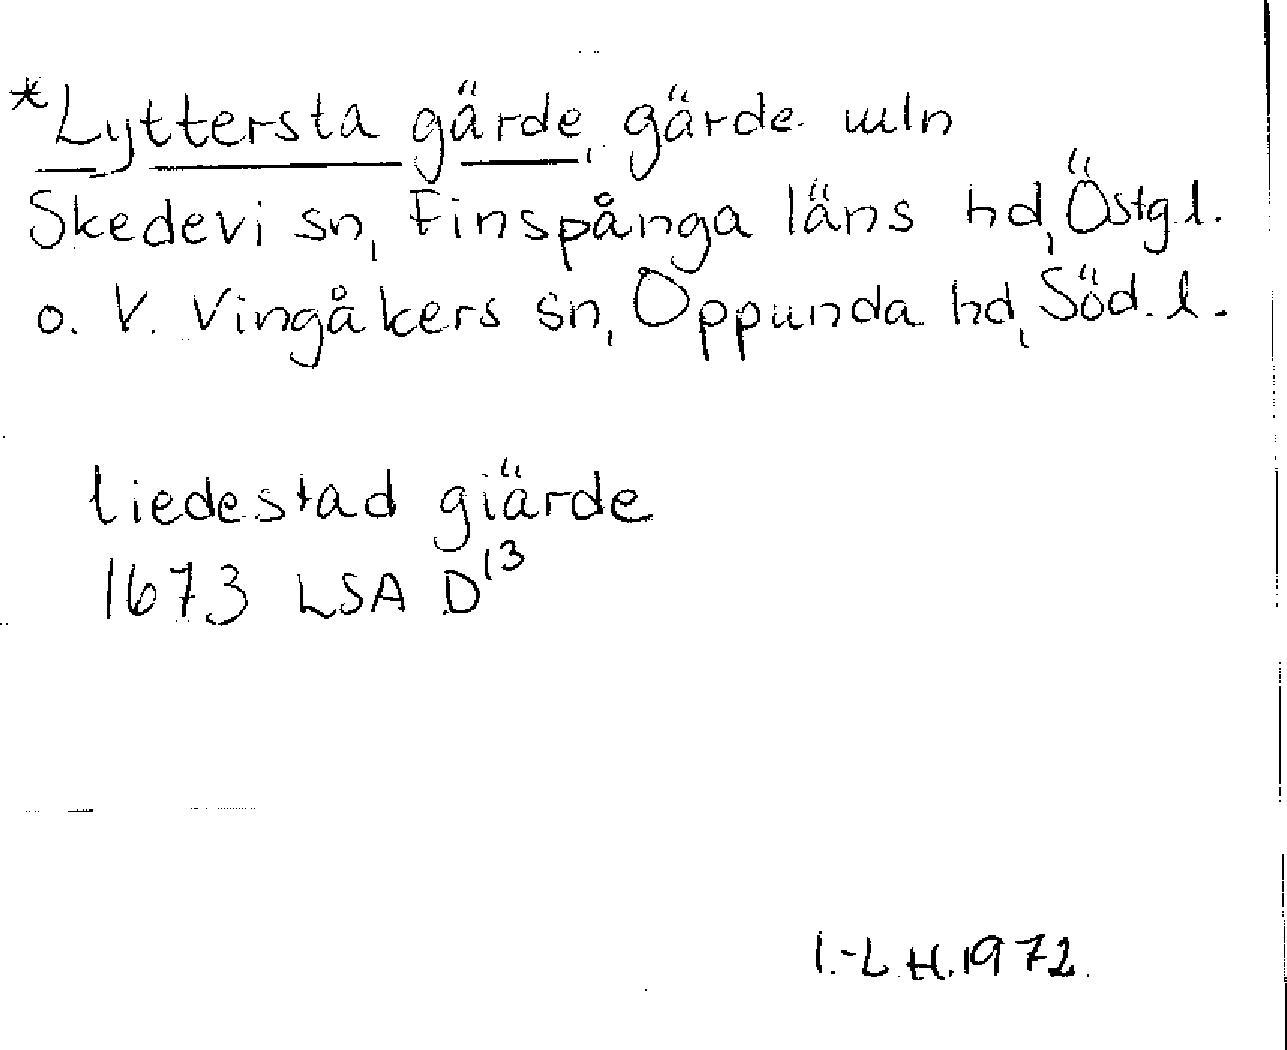 *Lyttersta gärde, gärde mln
Skedevi sn, Finspånga läns hd, Östg.l.
o. V. Vingåkers sn, Oppunda hd, Söd.l.
liedestad giärde
1673 LSA D13
I.-L.H.1972.